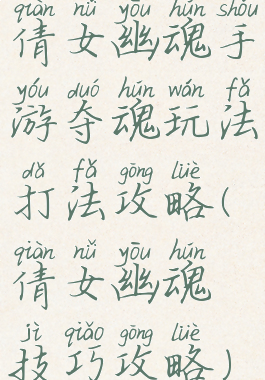 qiàn nǚ yōu hún shǒu
倩女幽魂手
yóu duó hún wán fǎ
游夺魂玩法
dǎ fǎ gōng lüè
打法攻略(
qiàn nǚ yōu hún
倩女幽魂
jì qiǎo gōng lüè
技巧攻略)